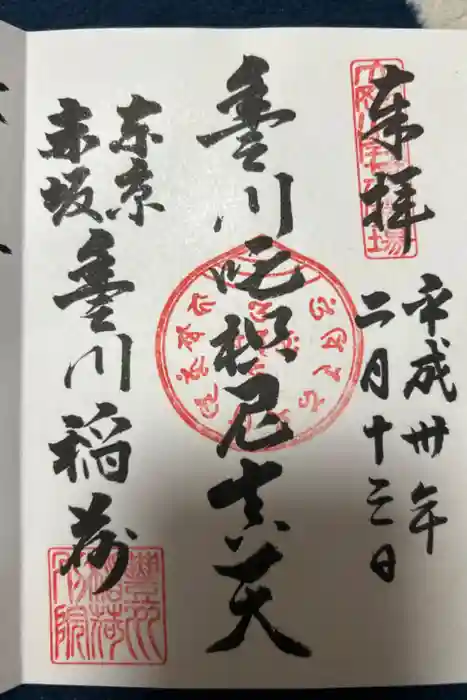 奉拝
平成卅年
二月十三日
豊川吒枳尼真天
東京
赤坂
豊川稲荷
豊川稲荷別院